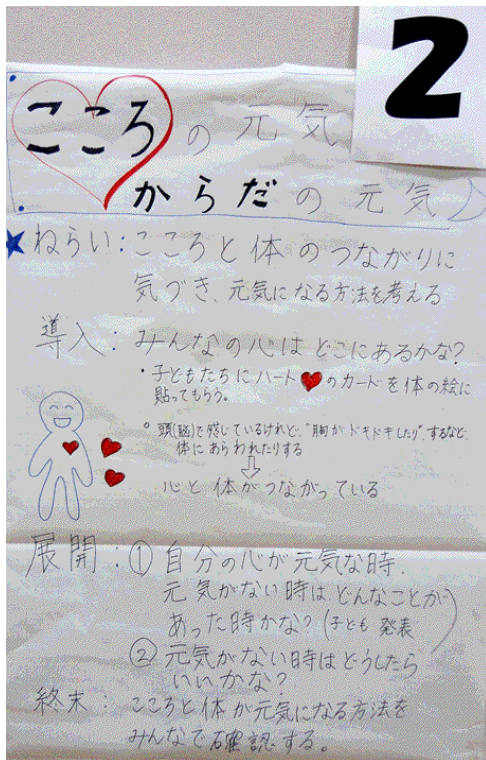 2
こころの元気
からだの元気♪
★ねらい:こころと体のつながりに
気づき、元気になる方法を考える
導入:みんなの心はどこにあるかな?
・子どもたちにハート♥のカードを体の絵に
貼ってもらう。
○頭(脳)で感じているけれど、"胸がドキドキしたり"するなど、
体にあらわれたりする
⇩
心と体がつながっている
展開:①自分の心が元気な時、
元気がない時は、どんなことが
あった時かな?(子ども発表)
②元気がない時はどうしたら
いいかな?
終末:こころと体が元気になる方法を
みんなで確認する。